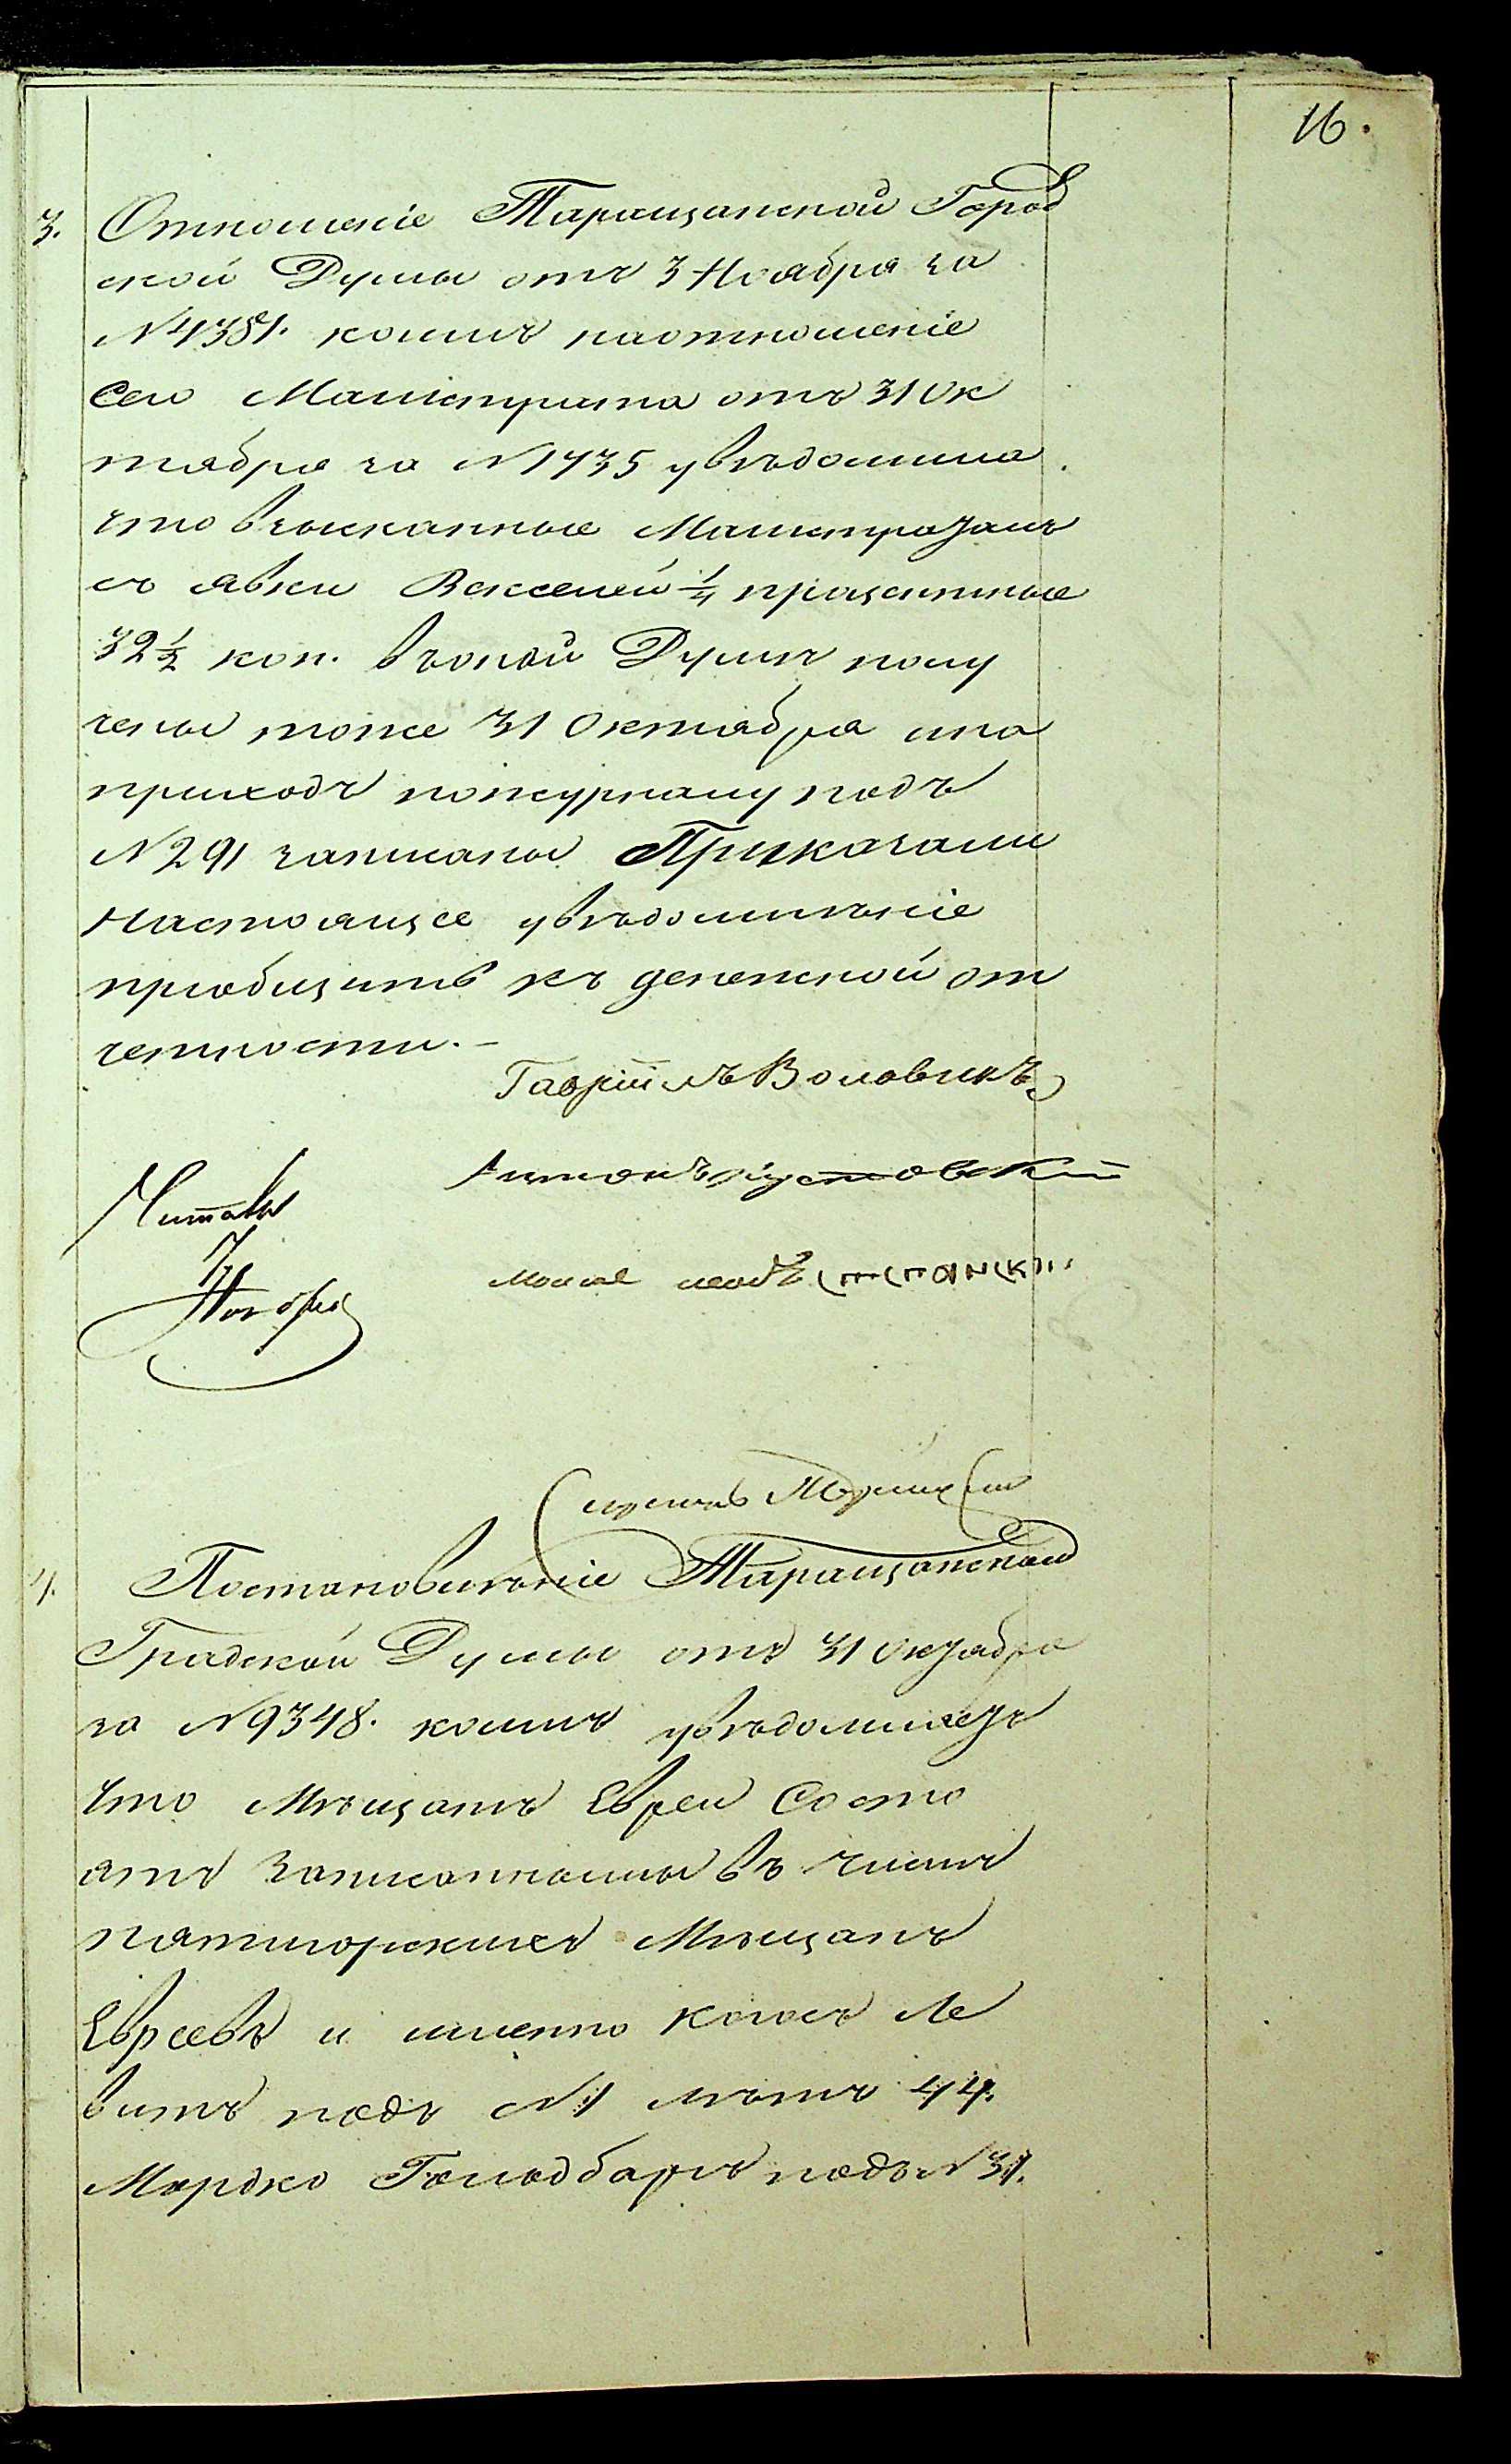 16.
3. Отношеніе Таращанской Город
ской Думы отъ 3 Ноября за
N 4381. коимъ наотношеніе
Сего Магистрата отъ 31 Ок
тября за N 1735 увѣдомила
что взысканные Магистратомъ
съ явки Векселей ¼ процентные
32 ½ коп. въоной Думѣ полу
чены тоже 31 Октября и на
приходъ пожурналу подъ
N 291 записаны Приказали
Настоящее увѣдомленіе
пріобщить къ денежной от
четности.-
Гавріилъ Воловикъ
Антонъ
Читалъ
Ноября
4. Постановленіе Таращанской
Градской Думы отъ 31 Октября
за N 9348. коимъ увѣдомляетъ
что Мѣщанъ Евреи Состо
ятъ записанными въ числѣ
пятигорскихъ Мѣщанъ
Евреевъ и именно Ле
витъ подъ N 1 лѣтъ 44.
Мордко Голодбаръ подъ N 31.